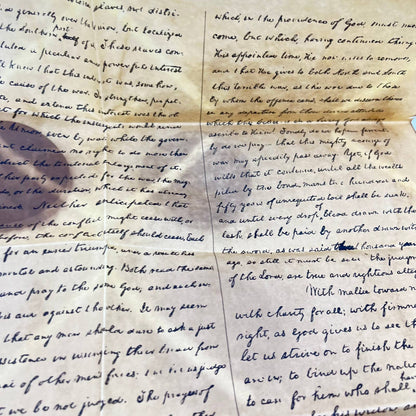 slaves, not distri-
generally over the Union, but localized
the Southern part of it. These slaves con-
a peculiar and powerful interest
knew that this interest was somehow,
the cause of the war. To strengthen, perpet-
and extend this interest was the ob
for which the insurgents would rend
Union even by war; while the govern
claimed no right to do more than
restrict the territorial enlargement of it.
party expected for the war, the mag
or the duration, which it has already
Neither anticipated that
cause of the conflict might cease with, or
before, the conflict itself should cease. Each
for an easier triumph, and a result less
mental and astounding. Both read the same
and pray to the same God; and each in
his aid against the other. It may seem
that any men should dare to ask a just
assistance in wringing their bread from
of other men's faces; but let us judge
we be not judged. The prayers of
which, in the providence of God, must needs
come, but which, having continued through
His appointed time, He now wills to remove,
and that He gives to both North and South
this terrible war, as the woe due to those
by whom the offence came, shall we discern therein
any departure from those divine attributes
which the believers in a living God always
ascribe to Him? Fondly do we hope— ferven
ly do we pray— that this mighty scourge of
war may speedily pass away. Yet, if God
wills that it continue, until all the wealth
piled by the bond-man's two hundred and
fifty years of unrequited toil shall be sunk,
and until every drop of blood drawn with the
lash, shall be paid by another drawn with
the sword, as was said three thousand years
ago, so still it must be said "the judgments
of the Lord, are true and righteous alto
With malice toward n
with charity for all; with firmn
right, as God gives us to see th
let us strive on to finish the
are in; to bind up the nation
to care for him who shall have
his widow